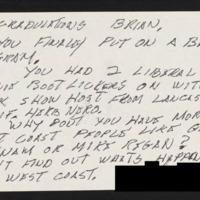 GRADULATIONS BRIAN,
YOU FINALLY PUT ON A B
GRAM.
YOU HAD 2 LIBERAL
BOOT LICKERS ON WIT
K SHOW HOST FROM LANCAS
IF. HERB NORO.
WHY DON'T YOU HAVE MOR
T COAST PEOPLE LIKE G
NAM OR MIKE REGAN?
T FIND OUT WANTS HAPPEN
WEST COAST.